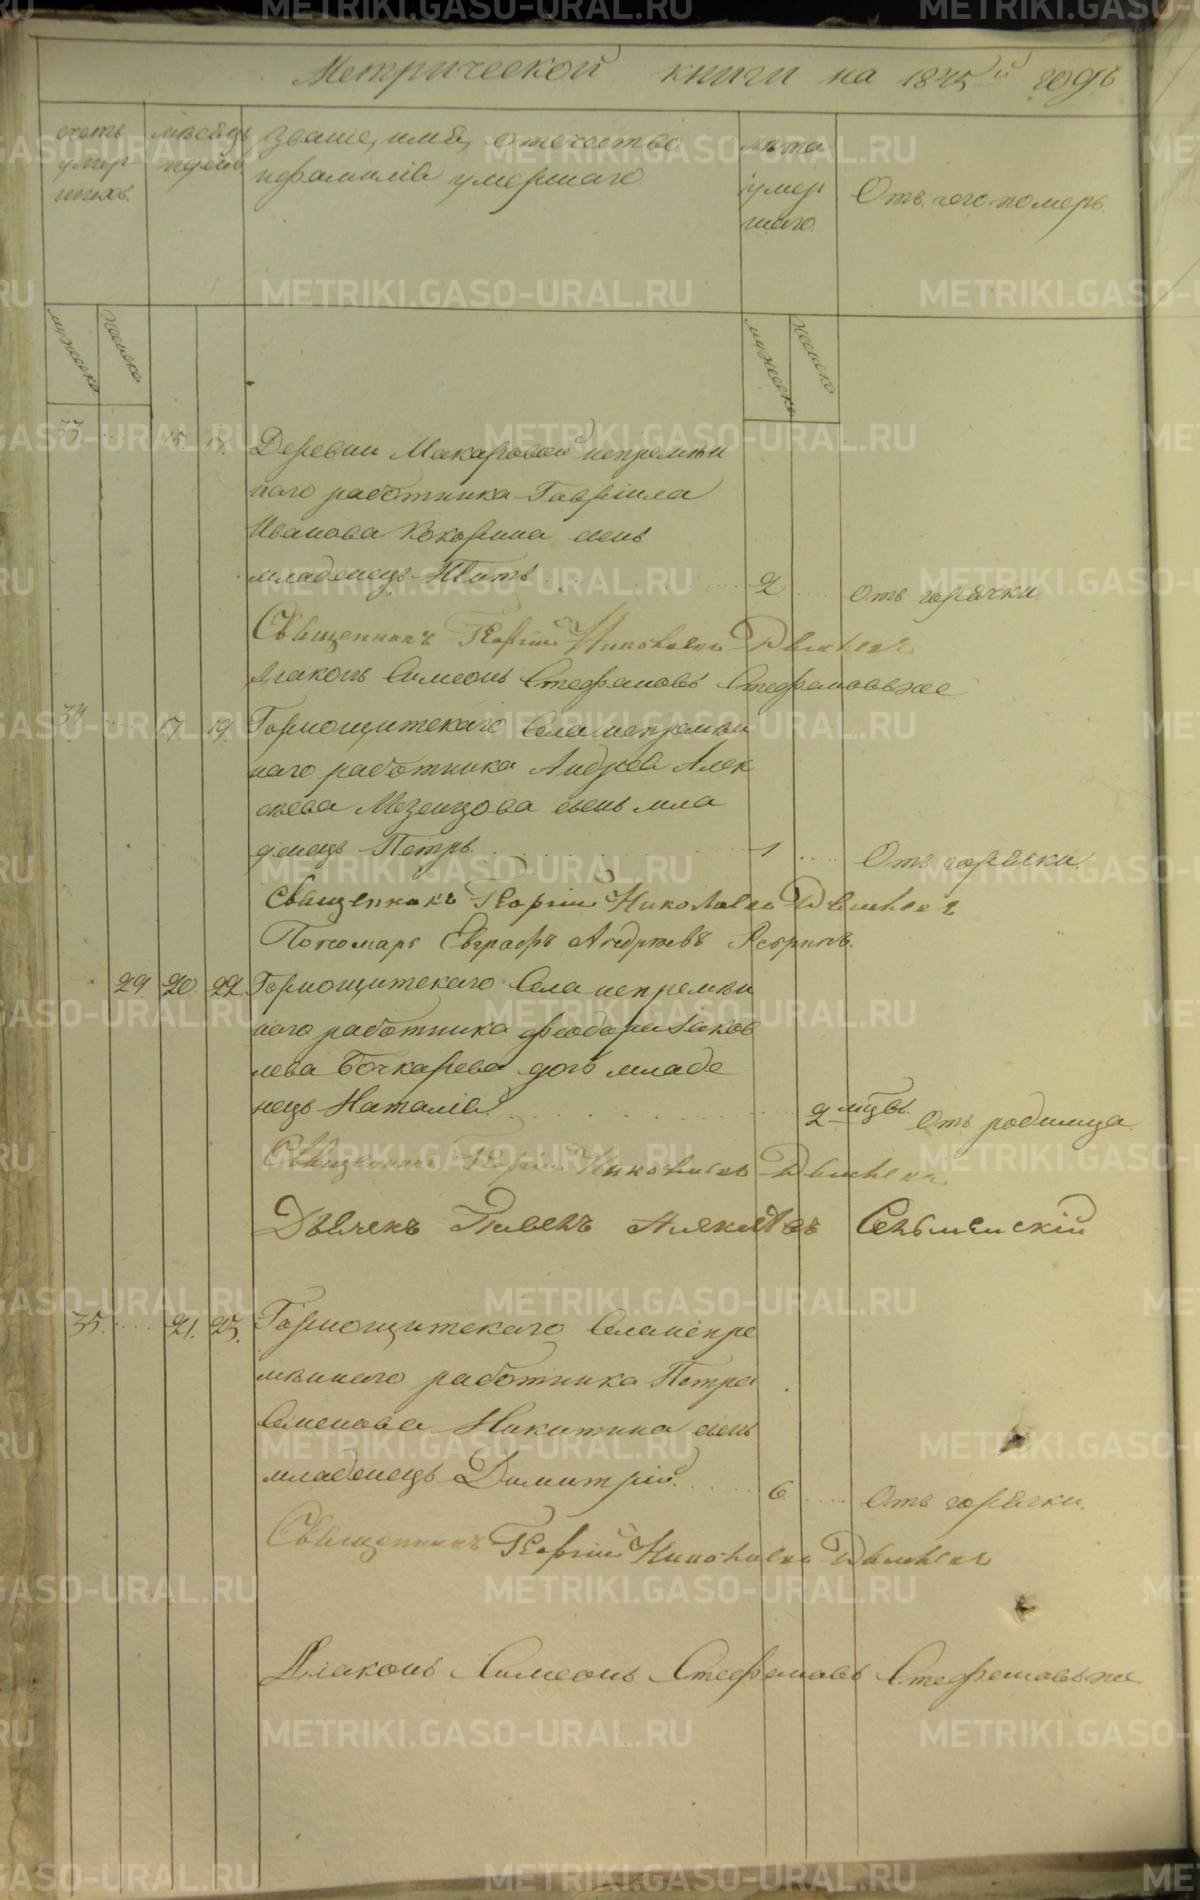 Метрической книги на 1845й годъ
счетъ умер шихъ
мѣсяцъ и день
званіе, имя, отечество и фамилія умершаго
лѣта умер шаго
Отъ чего померъ
мужеска
женска
мужеска
женска
33 15 17 Деревни Макаровой непремѣн
наго работника Гавріила
Иванова Кокорина сынъ
младенецъ Титъ 2 отъ горячки
Священникъ Георгій Николаевъ
Діаконъ Симеонъ Стефановъ Стефановскіе
34 17 19 Горнощитскаго Села непремѣн
наго работника Андрея Алек
сѣева Мезенцова сынъ мла
денецъ Петръ 1 Отъ горячки
Священникъ Георгій Николаевъ
Пономарь Евграфъ Андреевъ
29 20 22 Горнощитскаго Села непремѣн
наго работника Феодора Яков
лева Бочкарева дочь младе
нецъ Наталія 2 мѣцы. Отъ родимца
Священникъ Георгій Николаевъ
Дьячекъ Павелъ
35 21 23 Горнощитскаго Села непре
мѣннаго работника Петра
Семенова Никитина сынъ
младенецъ Димитрій 6 Отъ горячки
Священникъ Георгій Николаевъ
Діаконъ Симеонъ Стефановъ Стефановскіе
METRIKI.GASO-URAL.RU